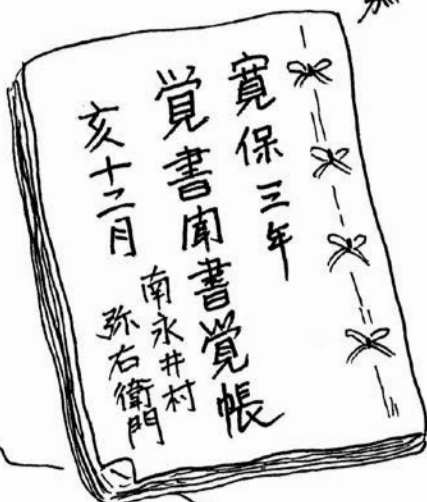 寛保三年
覚書聞書覚帳
亥十二月
南永井村
弥右衛門